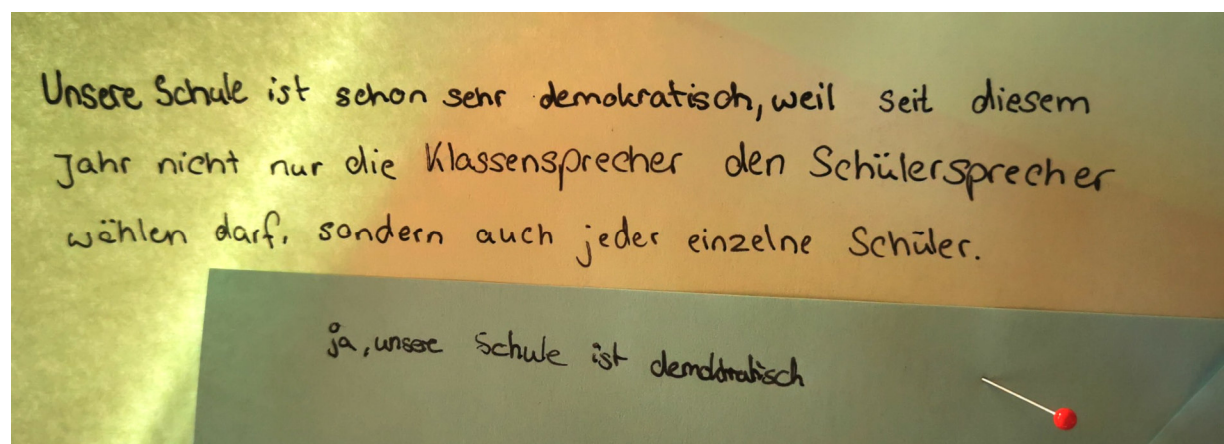 Unsere Schule ist schon sehr demokratisch, weil seit diesem
Jahr nicht nur die Klassensprecher den Schülersprecher
wählen darf, sondern auch jeder einzelne Schüler.
ja, unsere Schule ist demokratisch